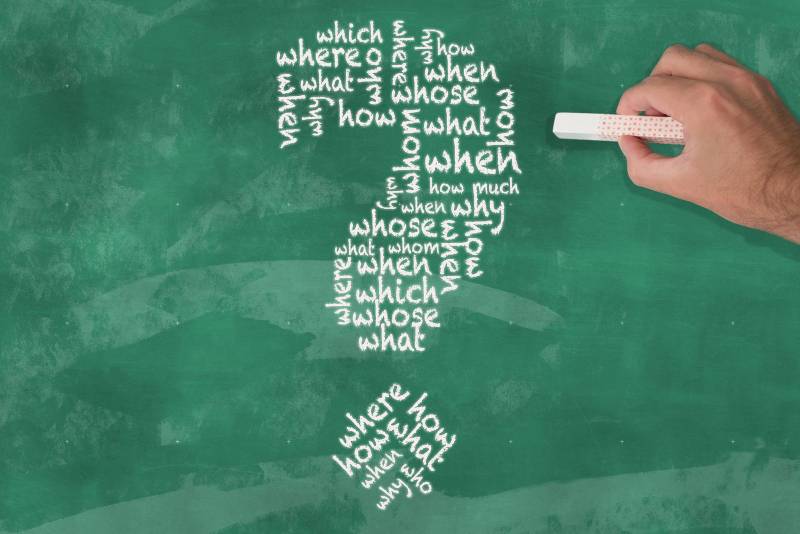 which
where
who
where
why
how
what
when
when
why
whose
how
how
whom
what
when
why
how much
when
why
whose
what
whom
when
how
where
when
which
whose
what
where
how
how
what
when
who
why